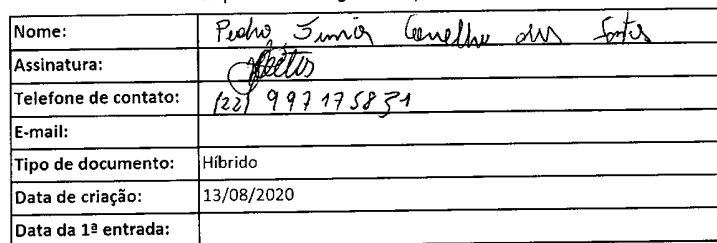 Nome: Pedro Junior Carvelho dos Santos
Assinatura:
Telefone de contato: (22) 997175831
E-mail:
Tipo de documento: Híbrido
Data de criação: 13/08/2020
Data da 1ª entrada: